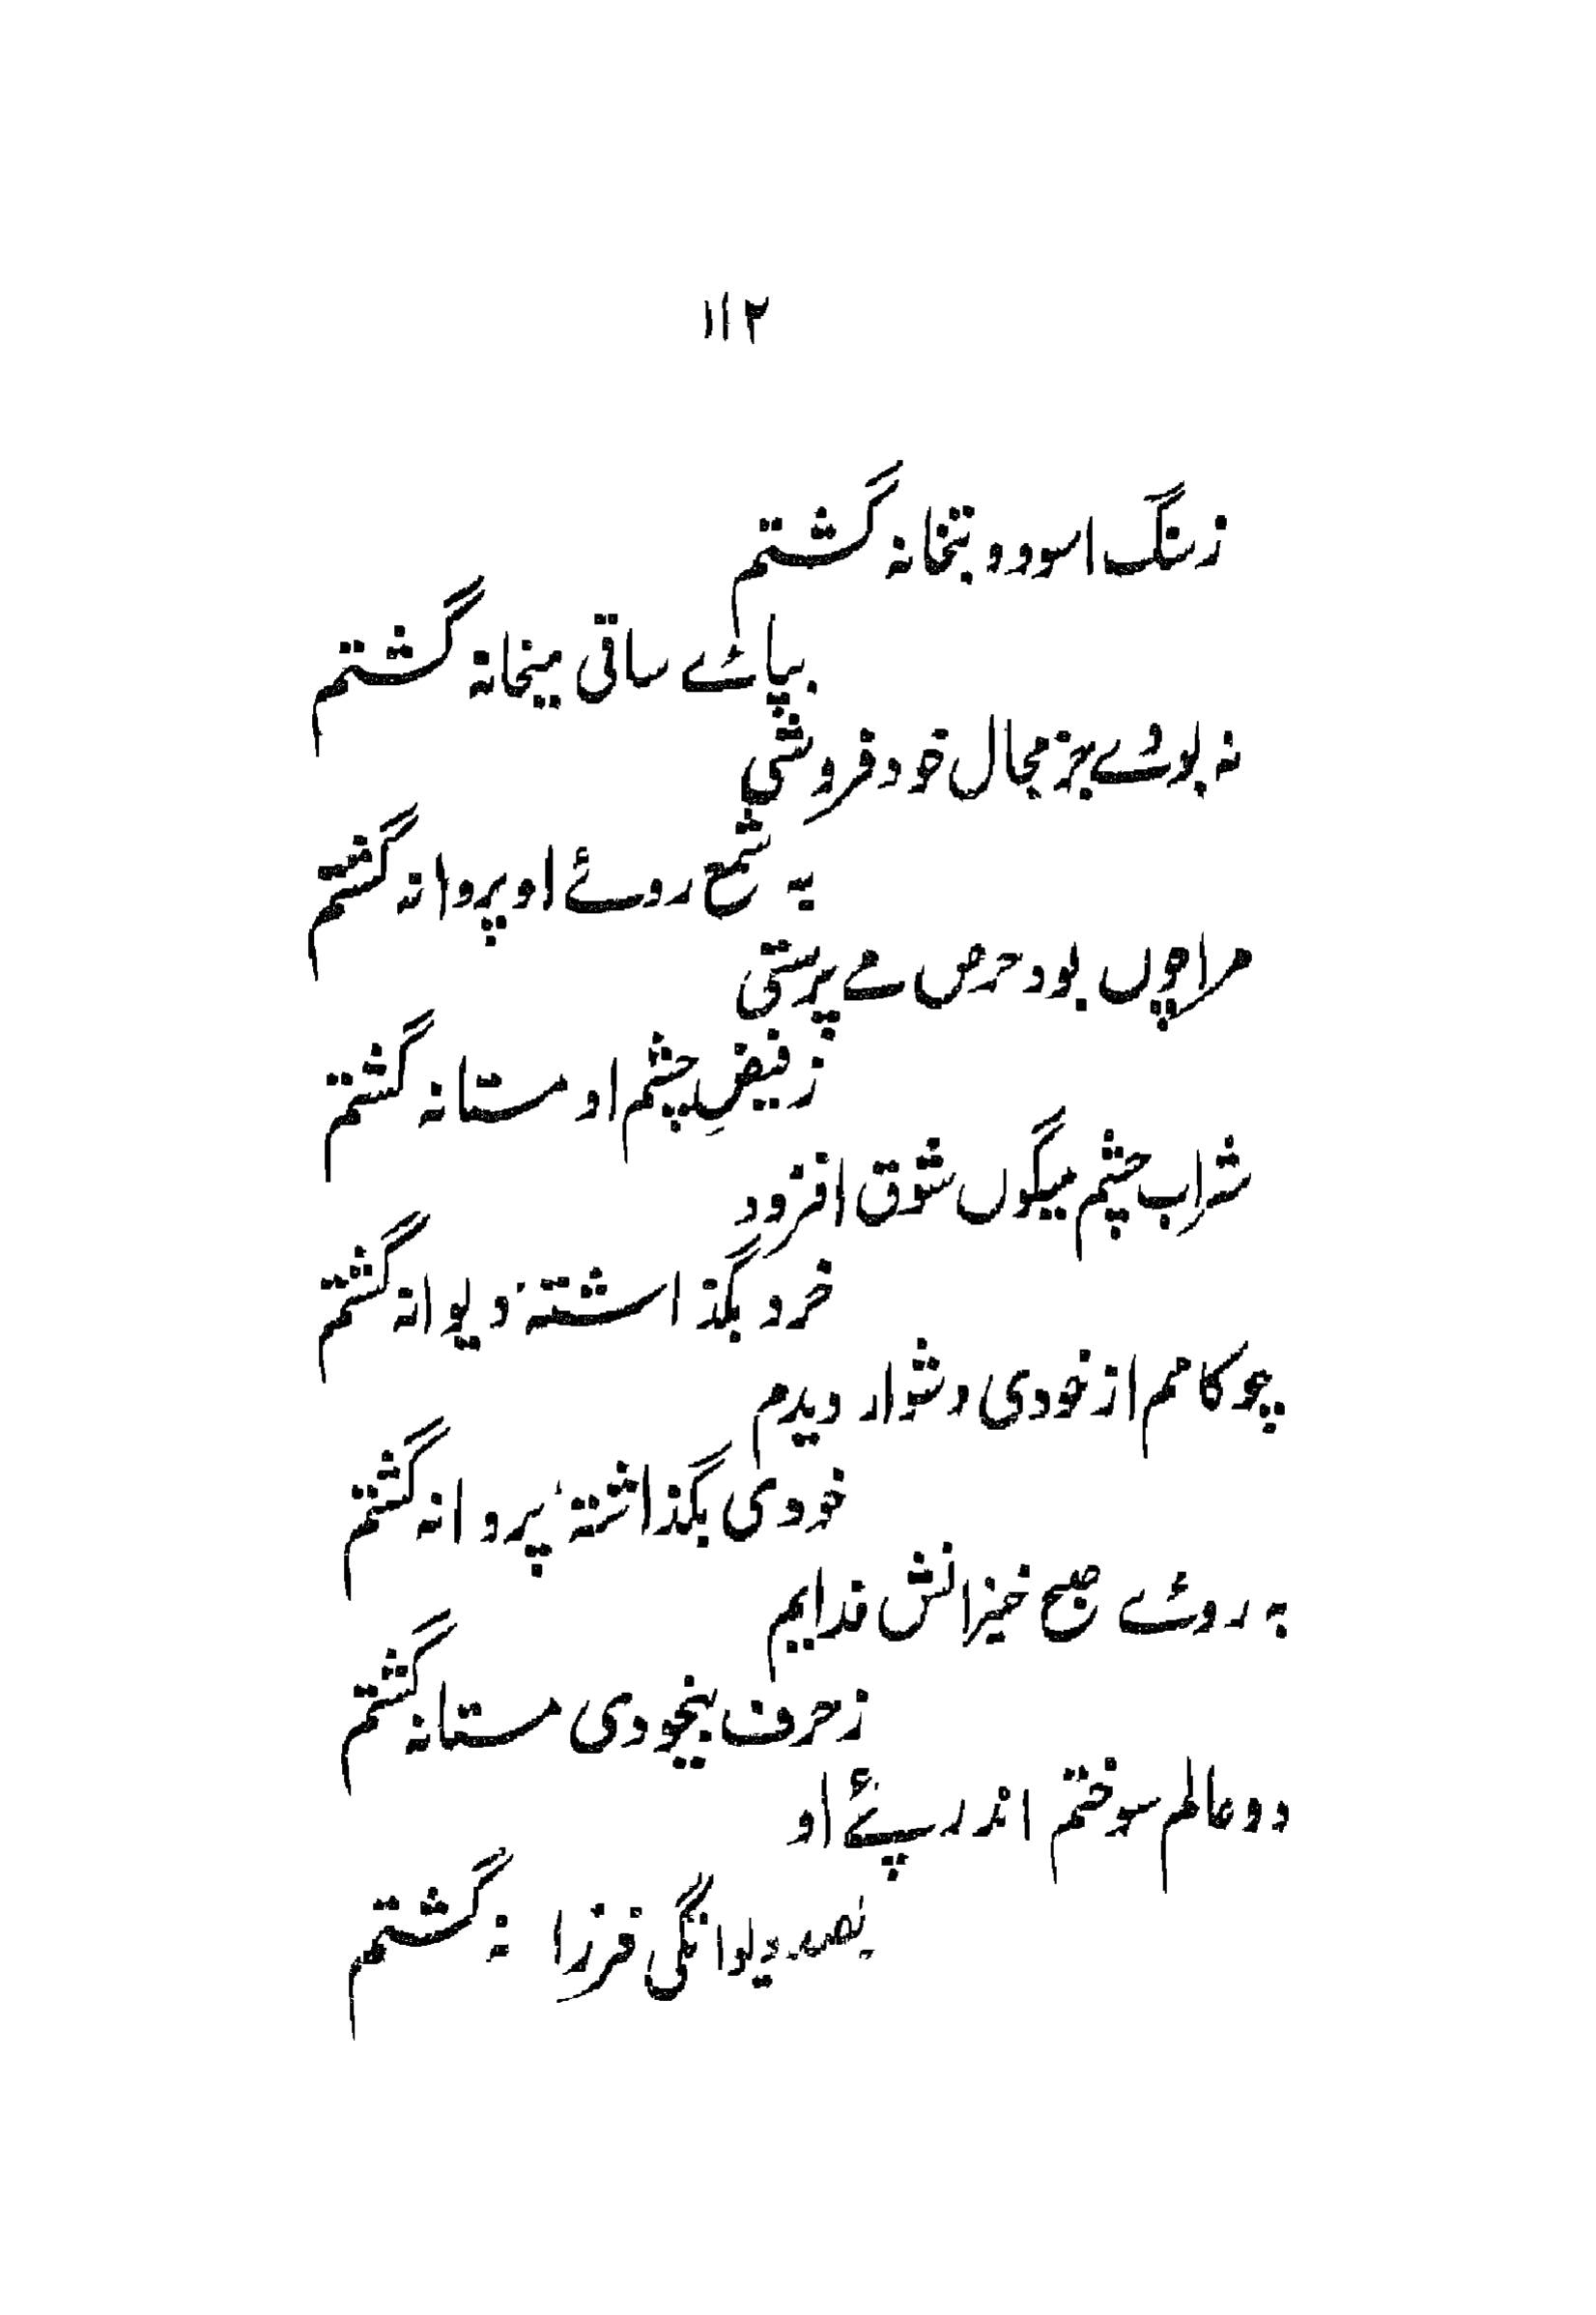 ۱۱۲
ز سنگ اسود و بتخانہ گشتم
بپائے ساقی میخانہ گشتم
نہ بودے جز مجال خود فروشی
بہ شمع روئے او پروانہ گشتم
مرا چوں بود حرص مے پرستی
ز فیضِ چشم او مستانہ گشتم
شراب چشم میگوں شوق افزود
خرد بگذاشتہ، دیوانہ گشتم
چو کامم از خودی دشوار دیدم
خودی بگذاشتہ، پروانہ گشتم
بہ روئے صبح خیزانش فدایم
ز حرف بیخودی مستانہ گشتم
دو عالم سوختم اندر پئے او
بصد دیوانگی فرزانہ گشتم